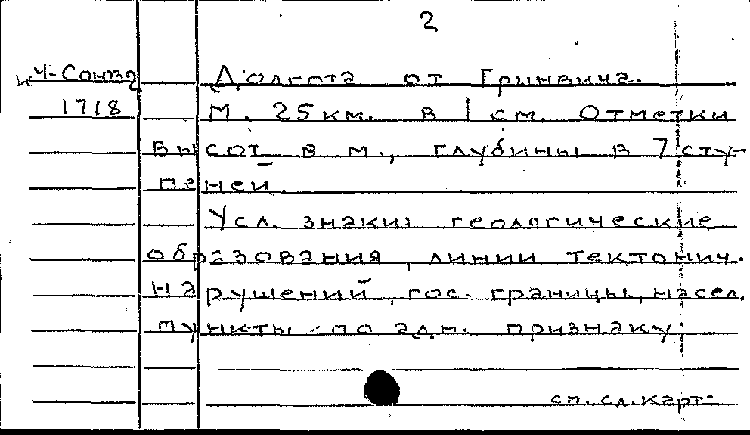 2
Ч-Союз
Долгота от Гринвича.
1718
М. 25км. в 1 см. Отметки
высот в м., глубины в 7 сту-
пеней.
Усл. знаки: геологические
образования, линии тектонич.
нарушений, гос. границы, насел.
пункты по адм. признаку.
см. сл. карт.